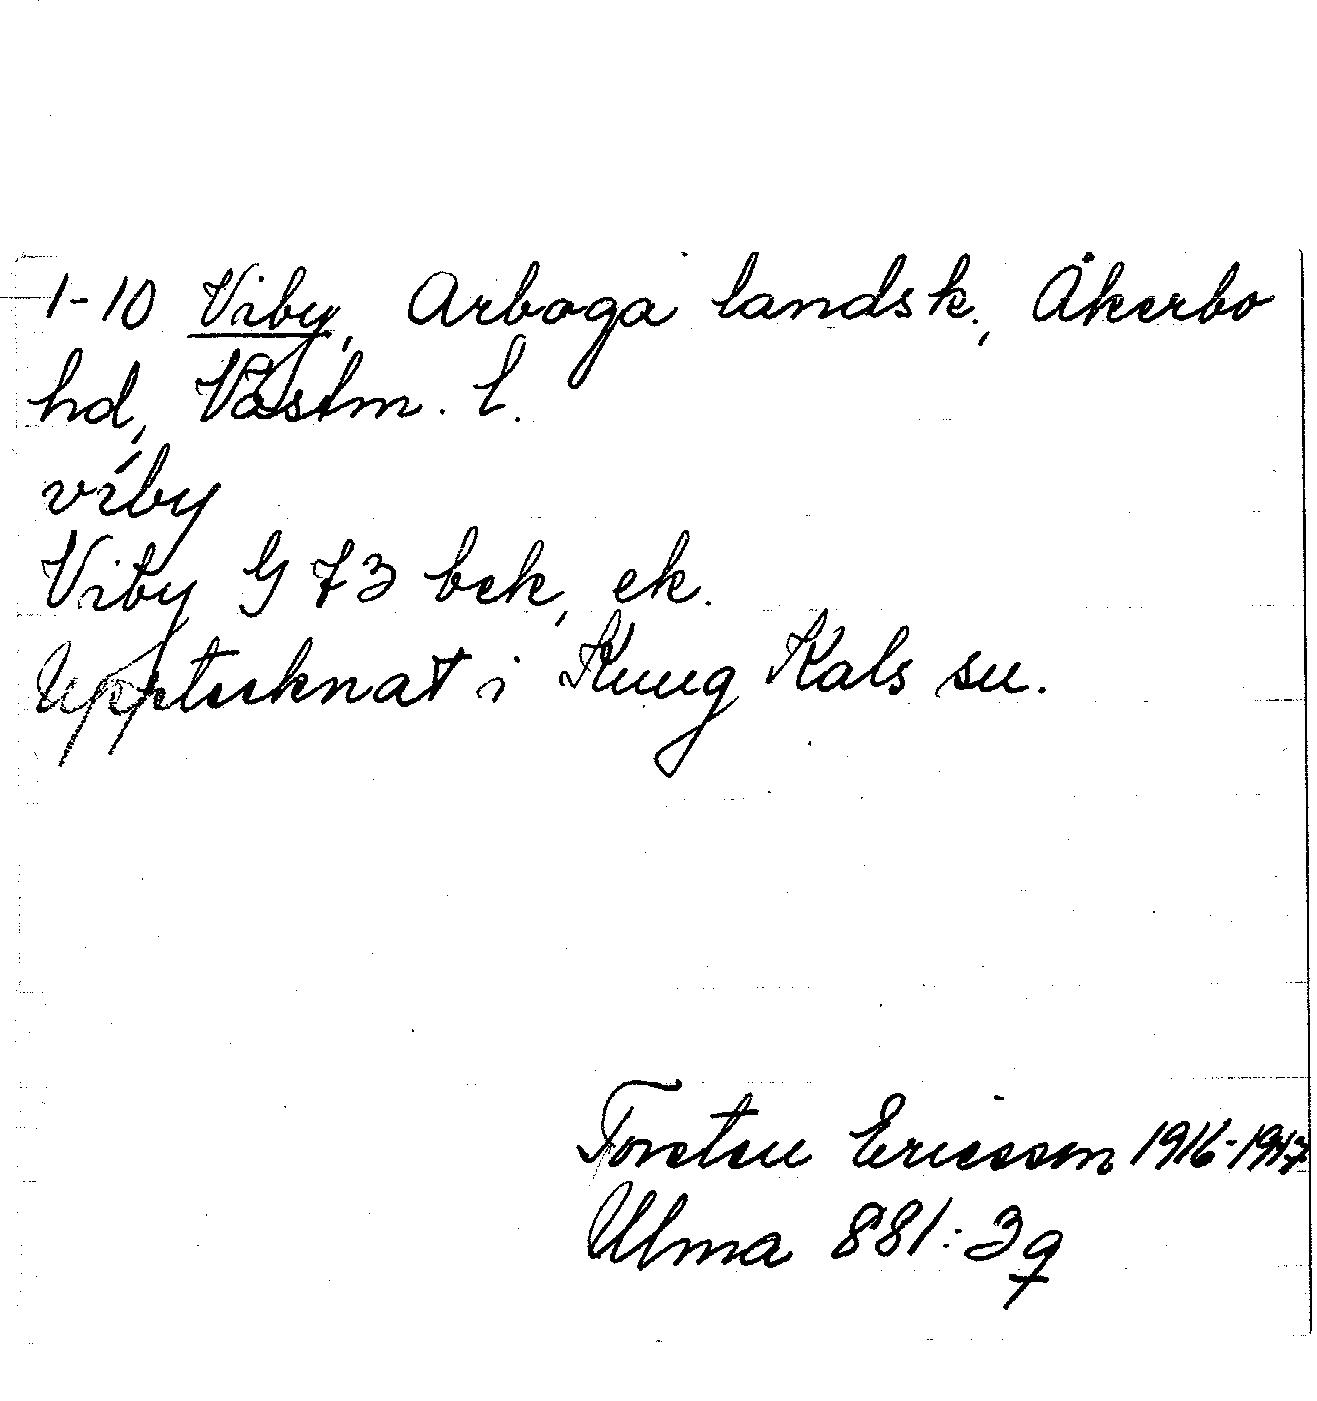 1-10 Viby, Arboga landsk., Åkerbo
hd, Västm. l.
víby
Viby G 73 bek, ek.
Upptecknat i Kung Kals sn.
Torsten Ericsson 1916-1917
Ulma 881:3q